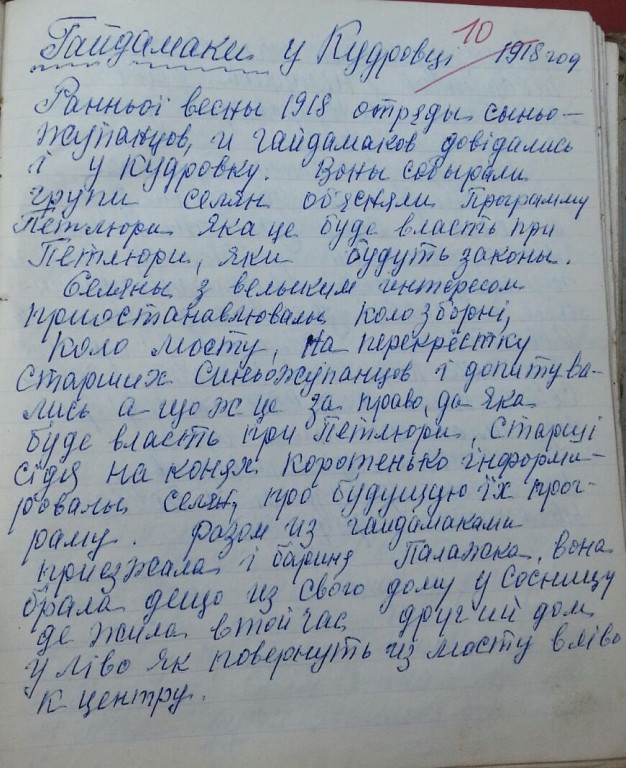 10
Гайдамаки у Кудровці 1918 год
Ранньої весны 1918 отряды сыньо-
жупанцов, и гайдамаков довідались
і у Кудровку. Воны собырали
групи селян обясняли Программу
Петлюри яка це буде власть при
Петлюри, яки будуть законы.
Селяны з велыким интересом
приостанавлювалы коло зборні,
коло мосту, на перекрёстку
старших синьожупанцов і допитува-
лись а що ж це за право, да яка
буде власть при Петлюри, старші
сідя на конях коротенько інформи-
ровалы селян, про будущую їх прог-
раму. Разом из гайдамаками
приезжала і барыня Палажка, вона
брала дещо из свого дому у Сосницу
де жила в той час другий дом
у ліво як повернуть из мосту вліво
к центру.